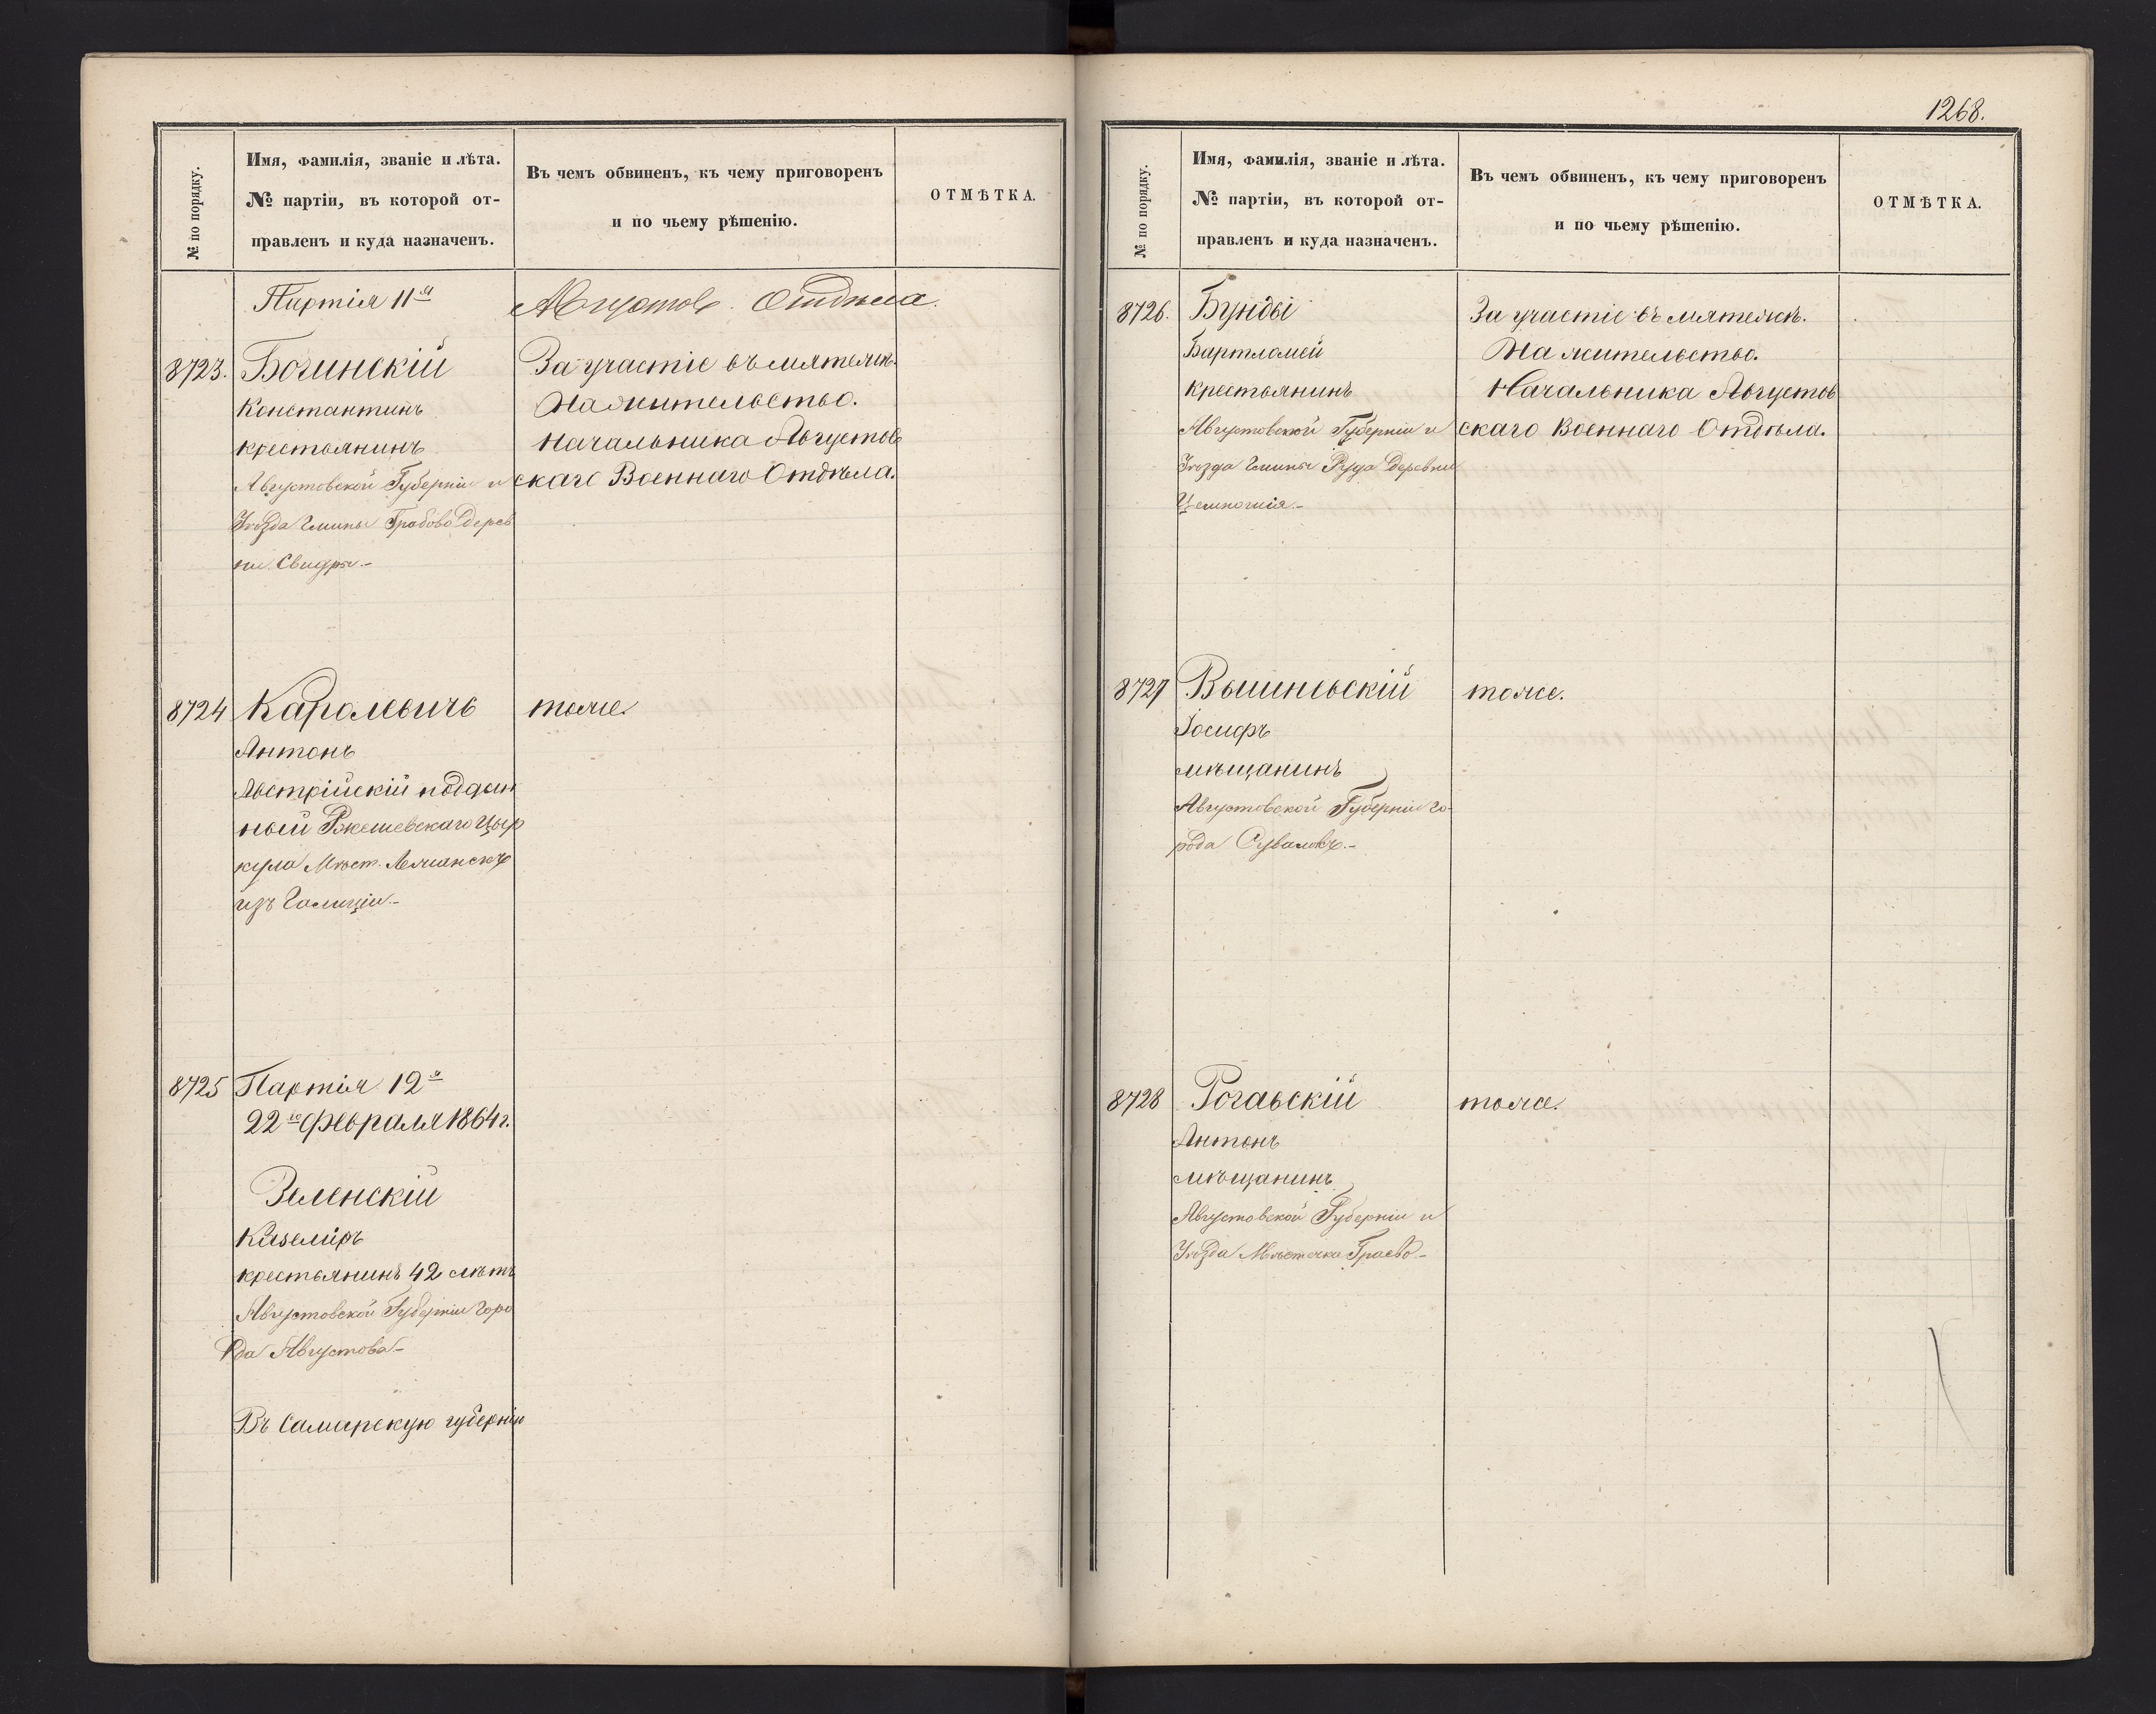 № по порядку.
Имя, фамилія, званіе и лѣта.
№ партіи, въ которой от-
правленъ и куда назначенъ.
Въ чемъ обвиненъ, къ чему приговоренъ
и по чьему рѣшенію.
ОТМѢТКА.
Партія 11я
Августов. Отдѣла.
8723.
Богинскій
Константинъ
крестьянинъ
Августовской Губерніи и
Уѣзда Гмины Грабово Дерев
ни Свидры.-
За участіе въ мятежѣ.
На жительство.
Начальника Августов
скаго Военнаго Отдѣла.
8724
Каролевичъ
Антонъ
Австрійскій поддан
ный Ржешевскаго Цыр
кула Мѣст.
изъ Галиціи.-
тоже.
8725
Партія 12я
22го Февраля 1864 г.
Зеленскій
Каземіръ
крестьянинъ 42 лѣтъ
Августовской Губерніи Горо
да Августова.-
Въ Самарскую губернію
1268.
№ по порядку.
Имя, фамилія, званіе и лѣта.
№ партіи, въ которой от-
правленъ и куда назначенъ.
Въ чемъ обвиненъ, къ чему приговоренъ
и по чьему рѣшенію.
ОТМѢТКА.
8726.
Бунды
Бартломей
крестьянинъ
Августовской Губерніи и
Уѣзда Гмины Руда Деревни
За участіе въ мятежѣ.
На жительство.
Начальника Августов
скаго Военнаго Отдѣла.
8727
Вышневскій
Іосифъ
мѣщанинъ
Августовской Губерніи Го-
рода Сувалокъ.-
тоже.
8728
Рогавскій
Антонъ
мѣщанинъ
Августовской Губерніи и
Уѣзда Мѣстечка Граево.-
тоже.